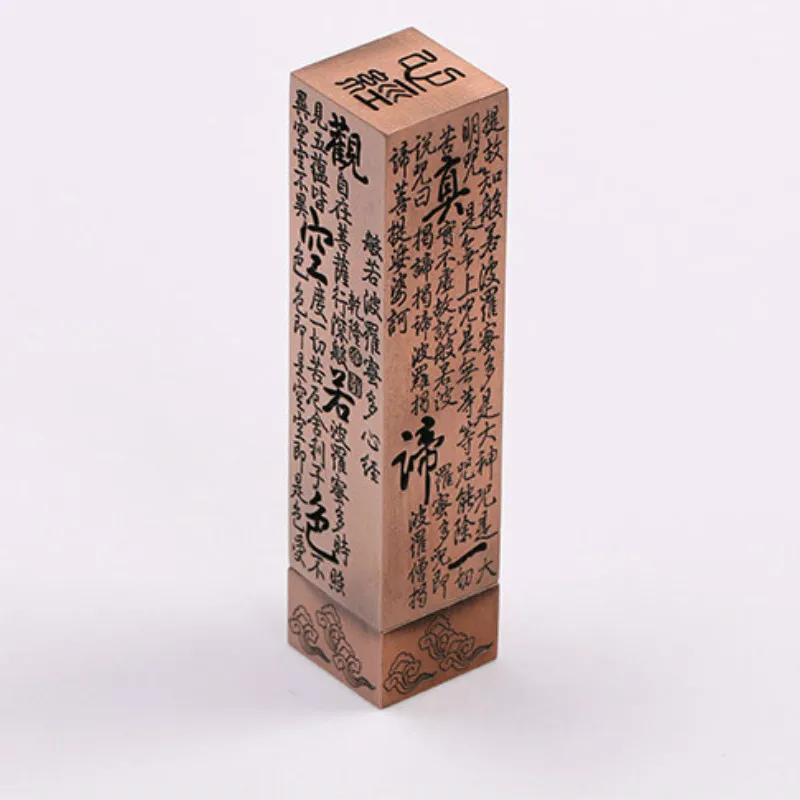 心經
般若波羅蜜多心经
乾隆
觀自在菩薩行深般若波羅蜜多時照
見五蘊皆空度一切苦厄舍利子色不
異空空不異色色即是空空即是色受
提故知般若波羅蜜多是大神咒是大
明咒是無上咒是無等等咒能除一切
苦真實不虛故說般若波羅蜜多咒即
說咒曰揭諦揭諦波羅揭諦波羅僧揭
諦菩提娑婆訶